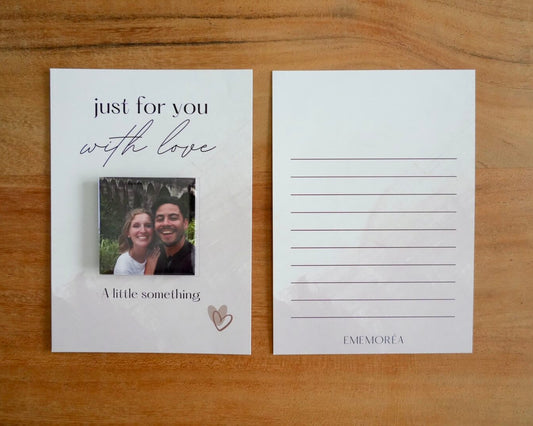 just for you
with love
A little something
EMEMORÉA